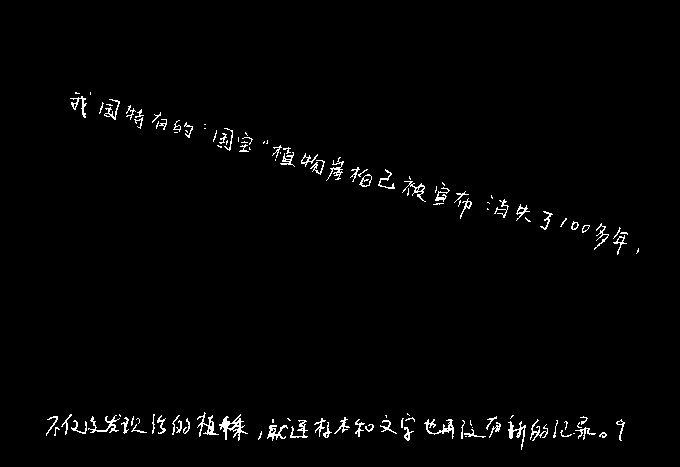 我国特有的“国宝”植物崖柏已被宣布消失了100多年，
不仅没发现活的植株，就连标本和文字也再没有新的记录。